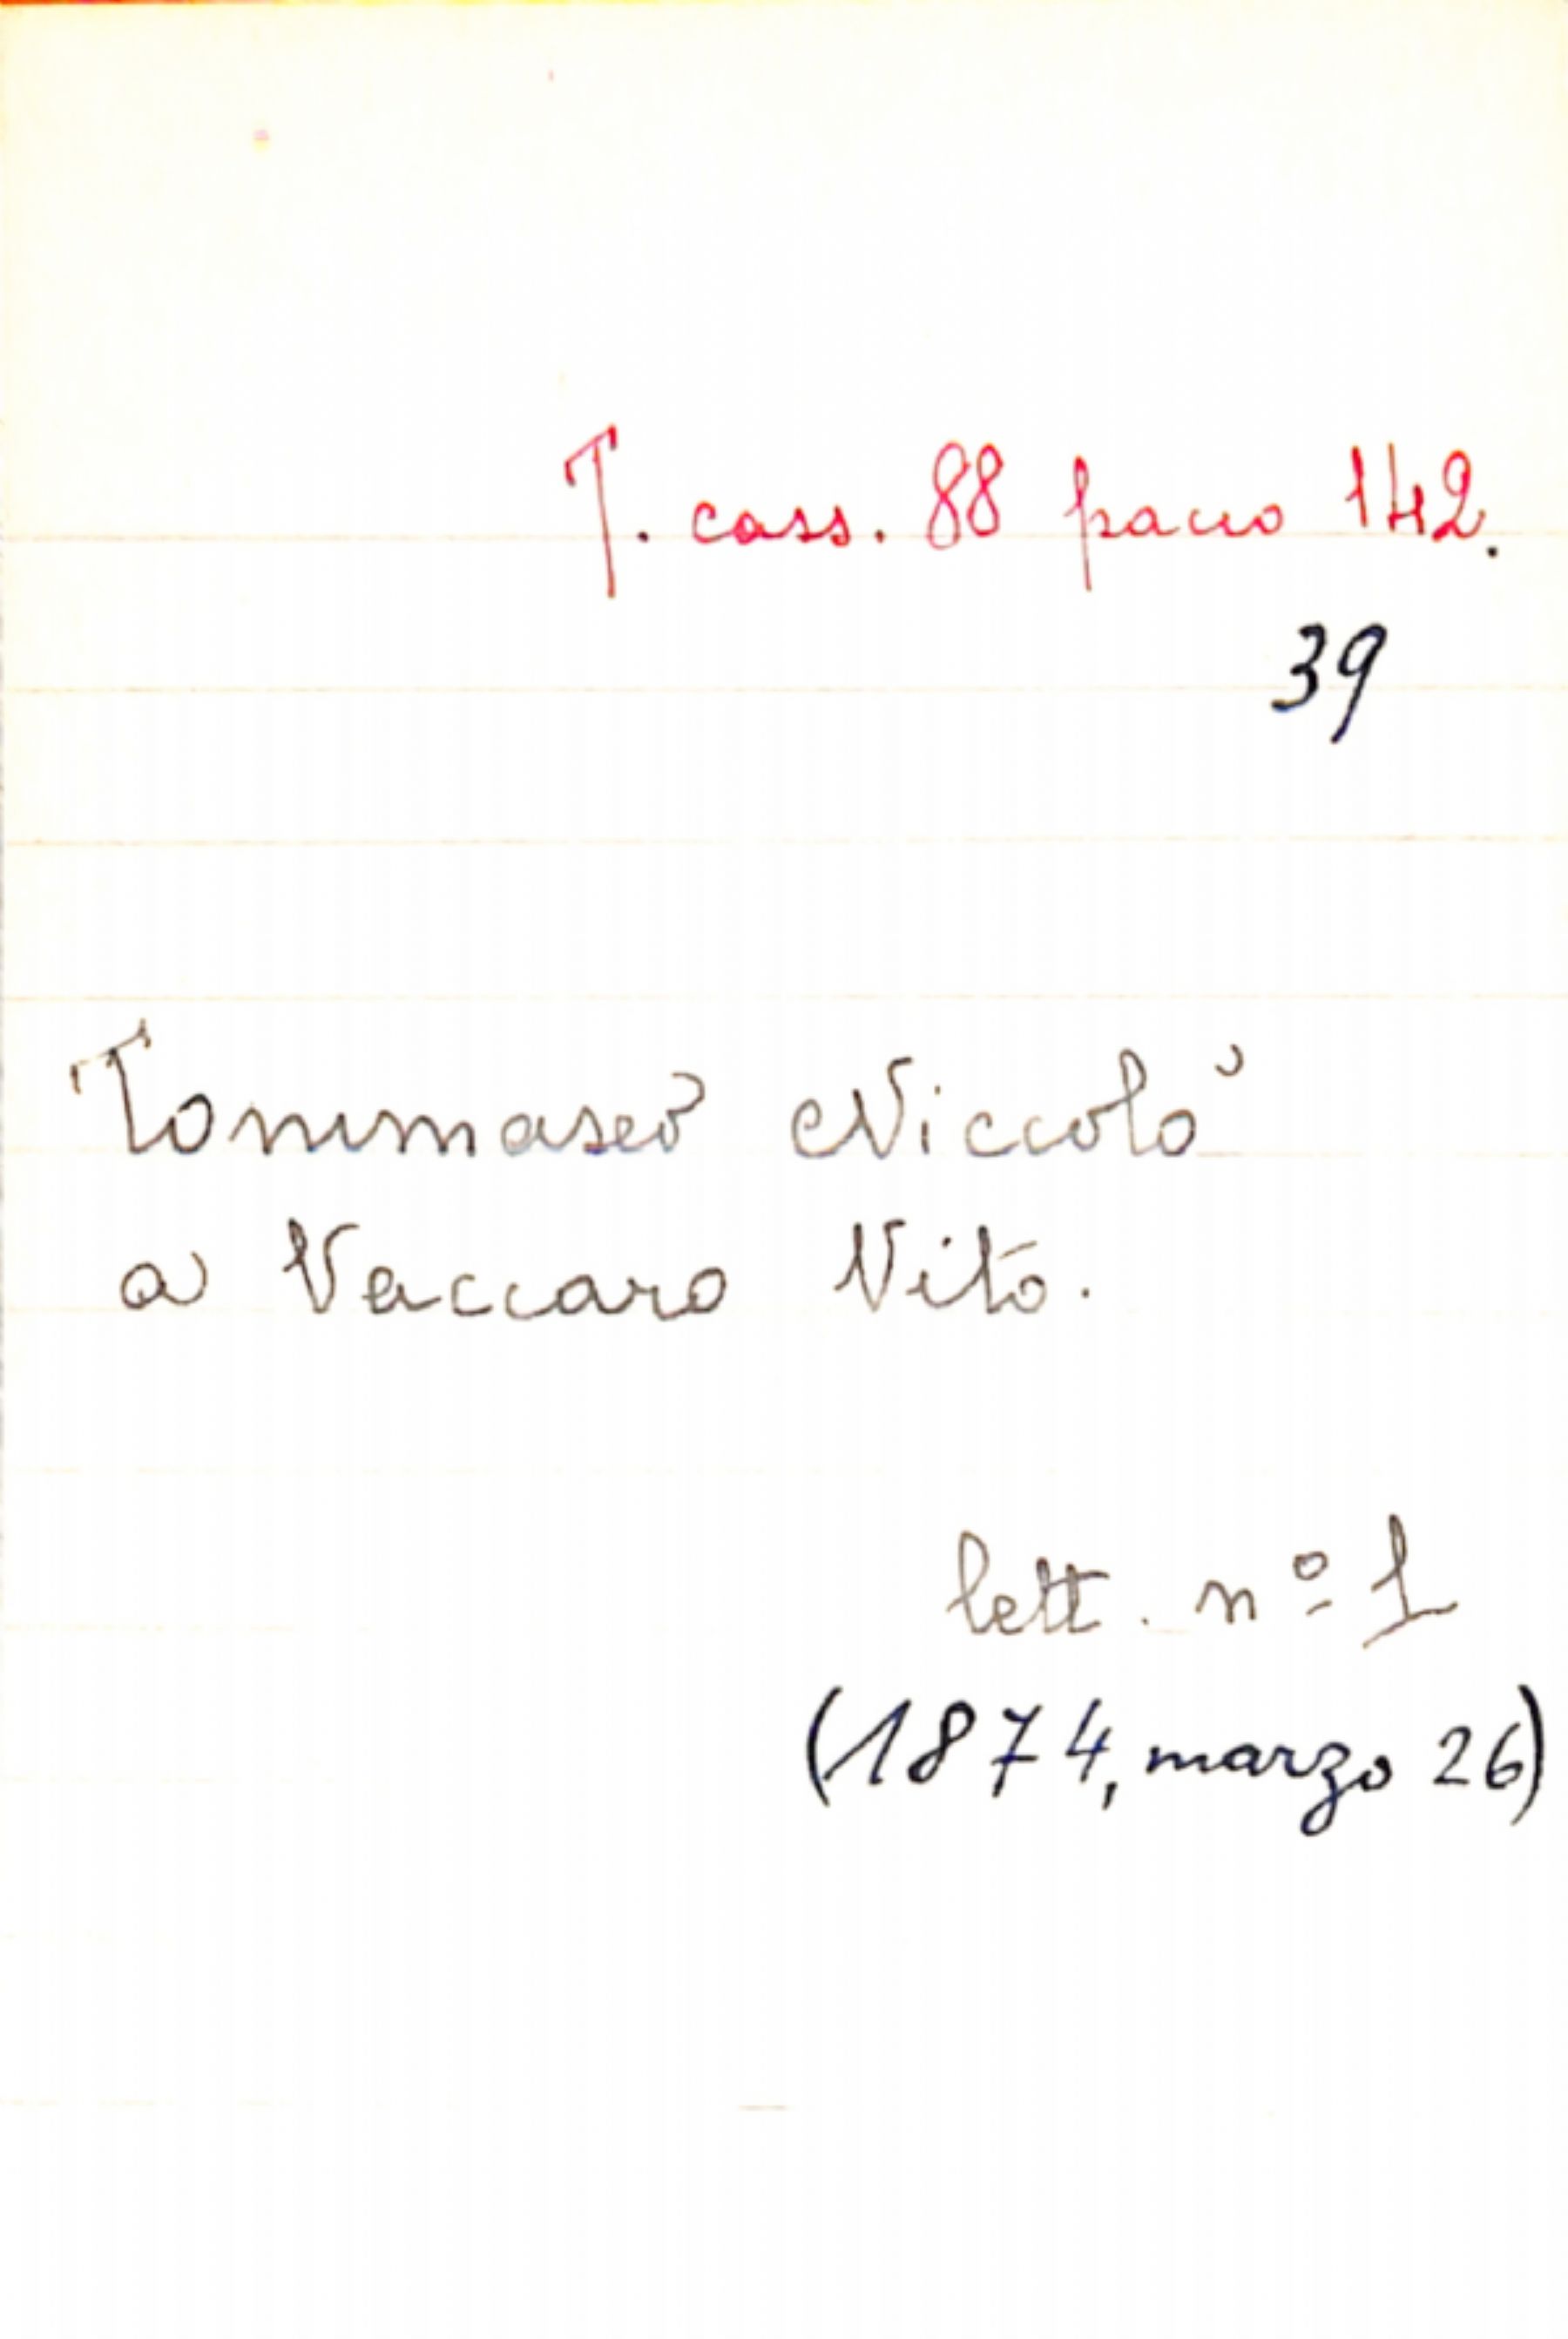 T. cass. 88 pacco 142.
39
Tommaseo Niccolò
a Vaccaro Vito.
lett. nº 1
(1874, marzo 26)